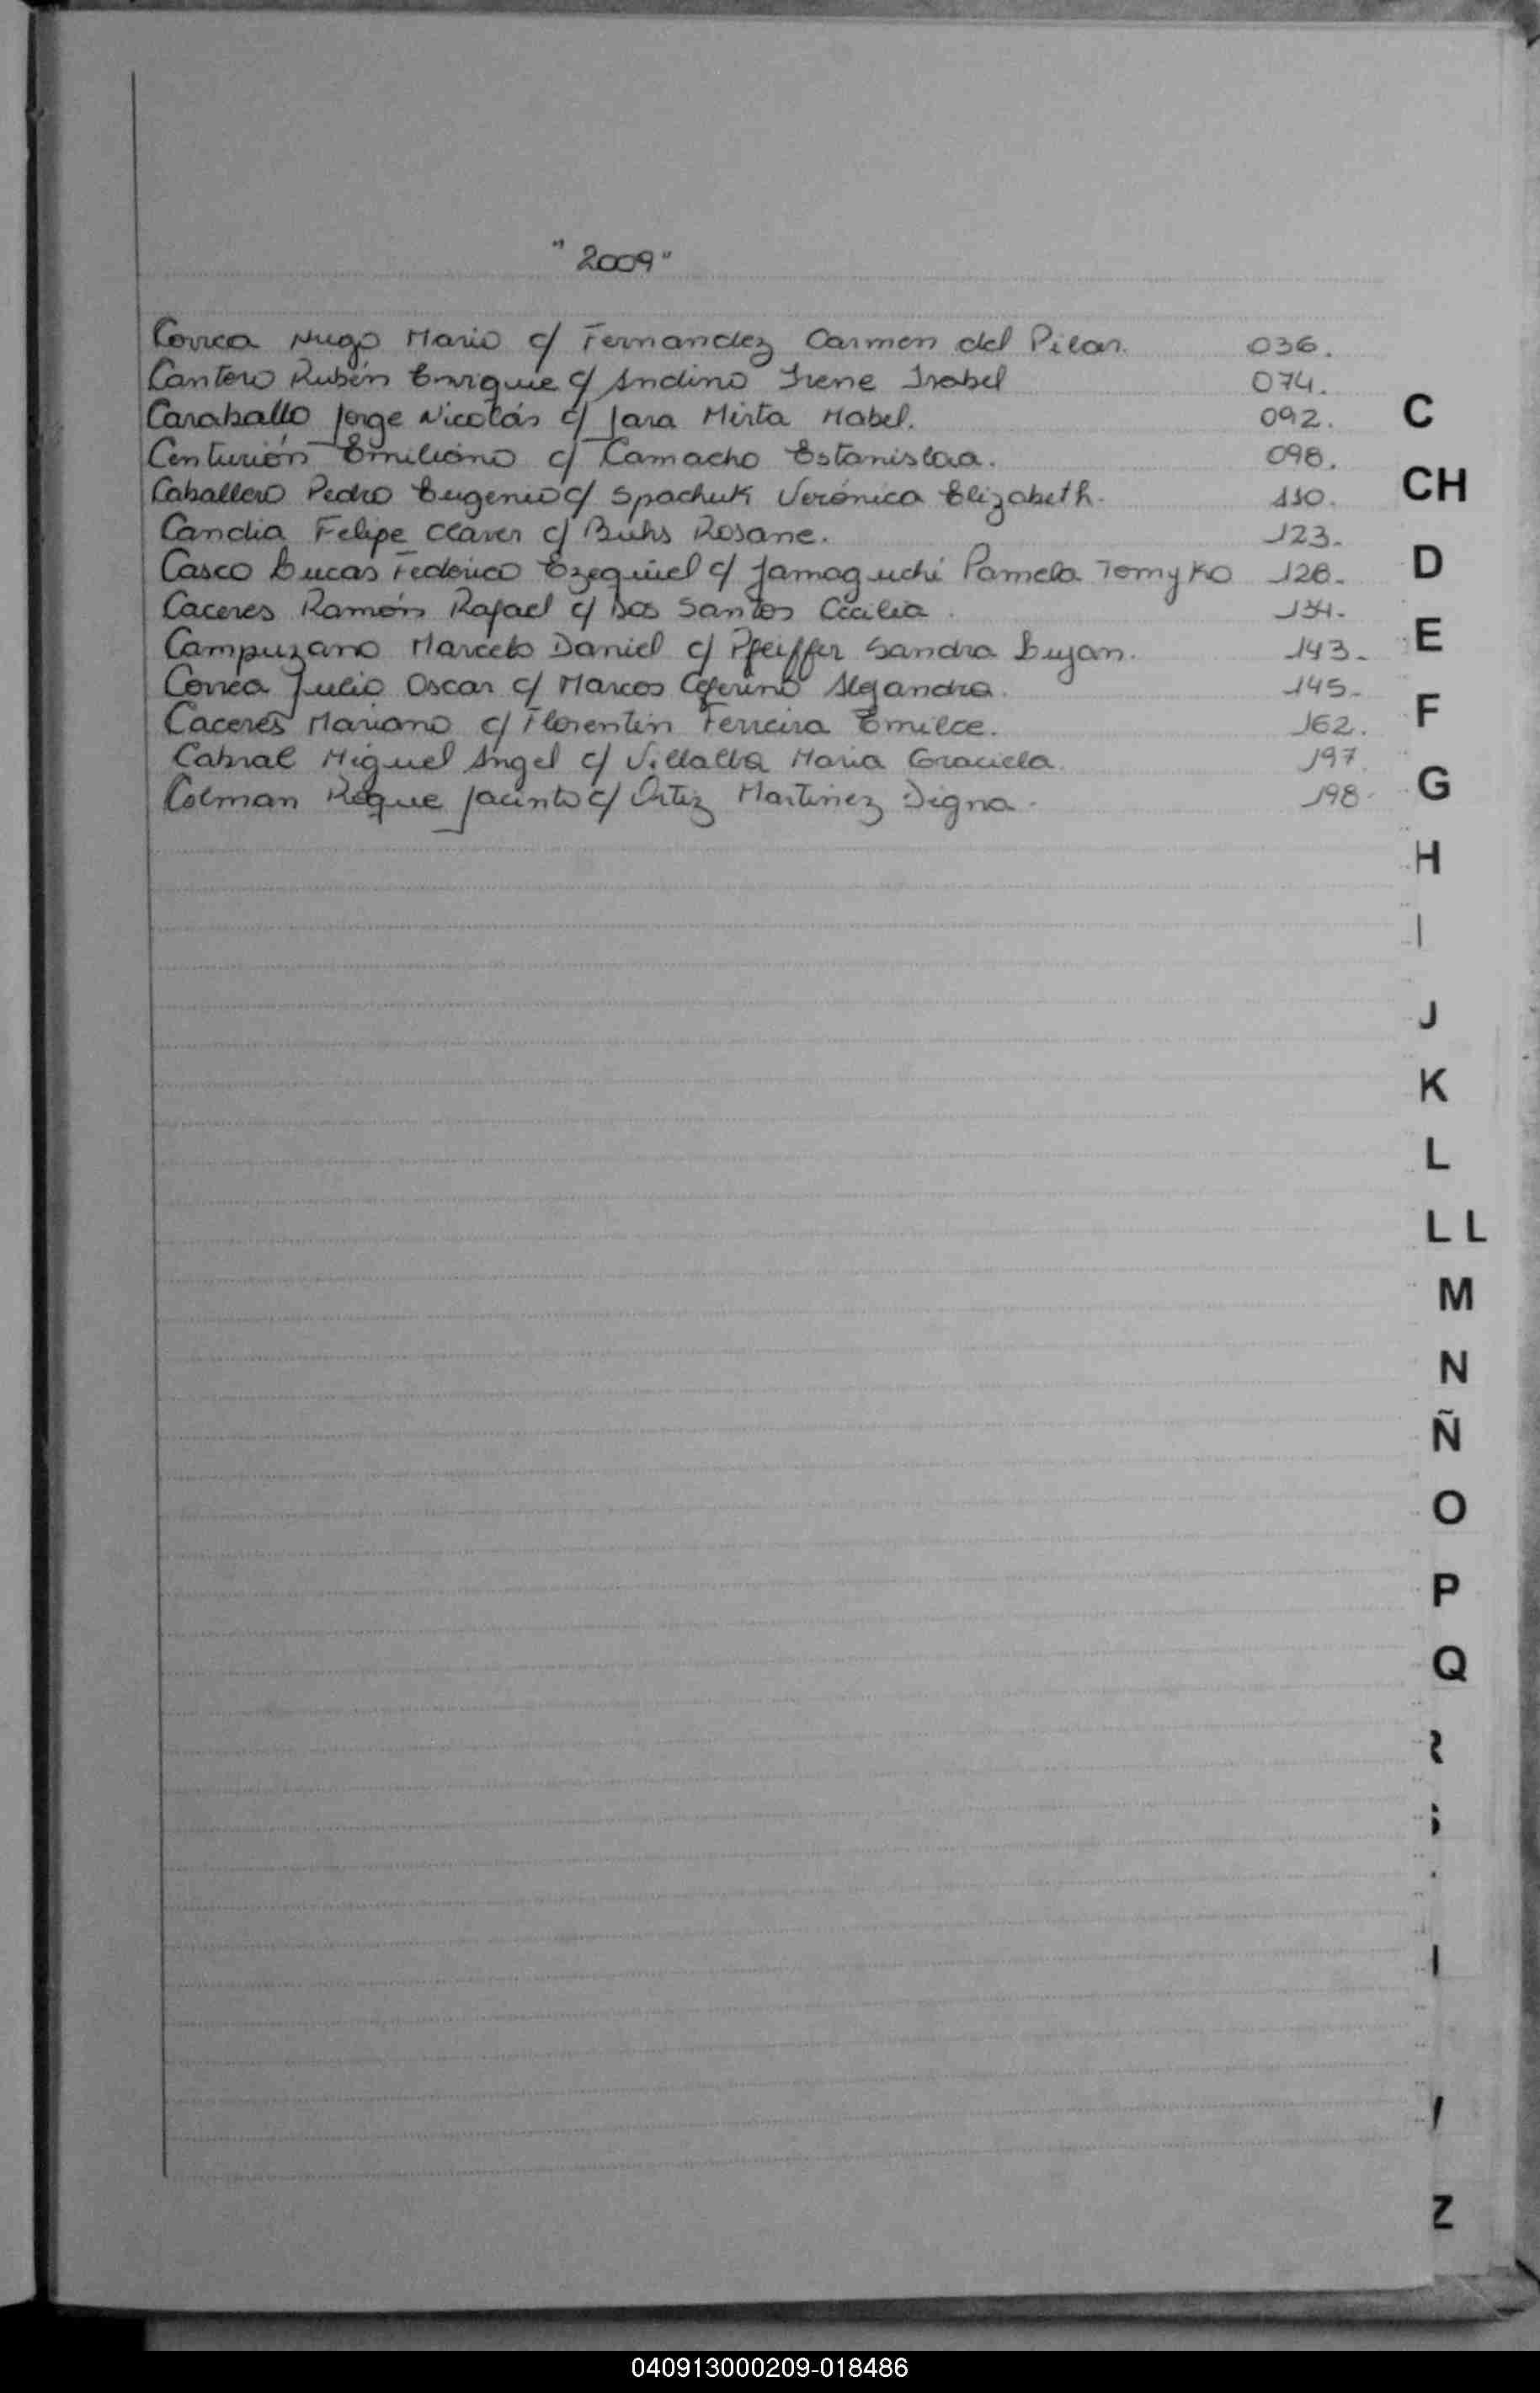 " 2009 "
Correa Hugo Mario c/ Fernandez Carmen del Pilar. 036.
Cantero Rubén Enrique c/ Andino Irene Isabel 074.
Caraballo Jorge Nicolás c/ Jara Mirta Mabel. 092.
Centurión Emiliano c/ Camacho Estanislaa. 098.
Caballero Pedro Eugenio c/ Spachuk Verónica Elizabeth. 110.
Candia Felipe Claver c/ Buhs Rosane. 123.
Casco Lucas Federico Ezequiel c/ Jamaguchi Pamela Tomyko 128.
Caceres Ramón Rafael c/ Dos Santos Cecilia. 134.
Campuzano Marcelo Daniel c/ Pfeiffer Sandra Lujan. 143.
Correa Julio Oscar c/ Marcos Ceferino Alejandra. 145.
Caceres Mariano c/ Florentin Ferreira Emilce. 162.
Cabral Miguel Angel c/ Villalba Maria Graciela. 197.
Colman Roque Jacinto c/ Ortiz Martinez Digna. 198.
C
CH
D
E
F
G
H
I
J
K
L
LL
M
N
Ñ
O
P
Q
Z
040913000209-018486